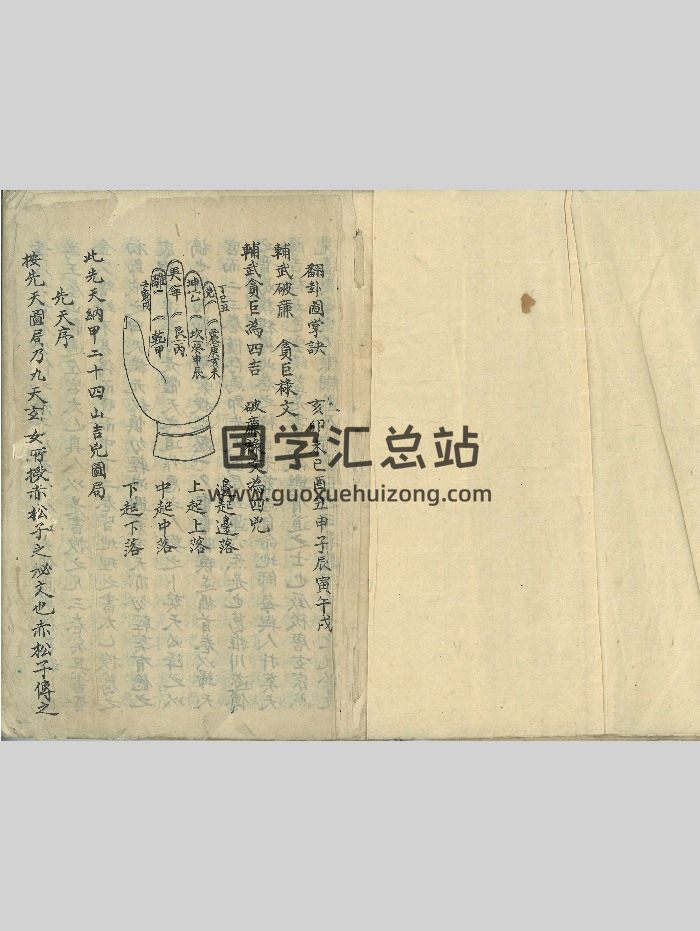 翻卦圖掌訣 亥卯未巳酉丑申子辰寅午戌
輔武破廉 貪巨祿文
輔武貪巨為四吉 破廉祿文為四兇
邊起邊落
上起上落
中起中落
下起下落
兌 丁巳丑
震庚亥未
坤乙
坎癸申辰
巽辛
艮丙
離
乾甲
此先天納甲二十四山吉兇圖局
先天序
按先天圖局乃九天玄女所授赤松子之祕文也赤松子傳之
国学汇总站
www.guoxuehuizong.com